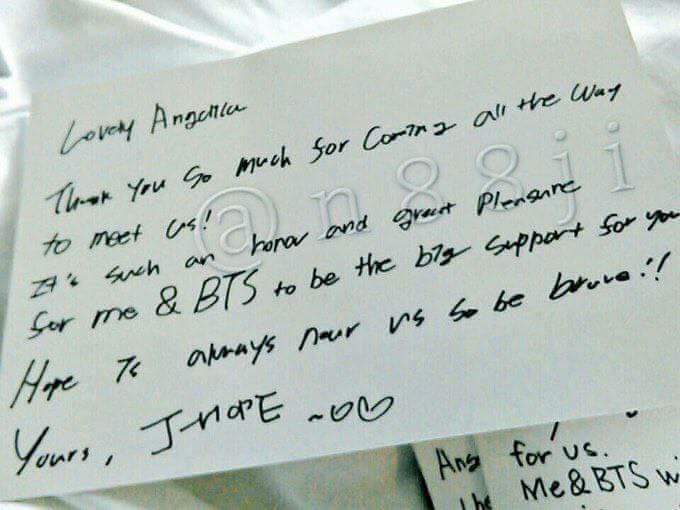 Lovely Angelica
Thank you so much for coming all the way
to meet us!
It's such an honor and great pleasure
for me & BTS to be the big support for you
Hope is always near us so be brave!!
Yours, J-HOPE ~♡♡
@n88ji
Ang
for us.
Me&BTS w